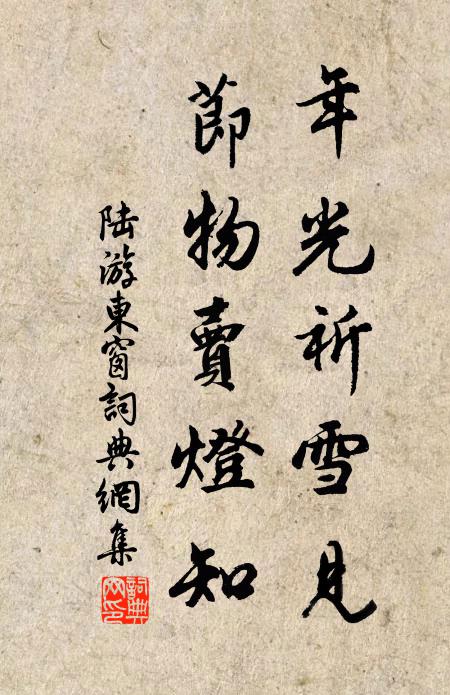 年光祈雪見
節物賣燈知
陸游東窗詞典網集
詞典
文印